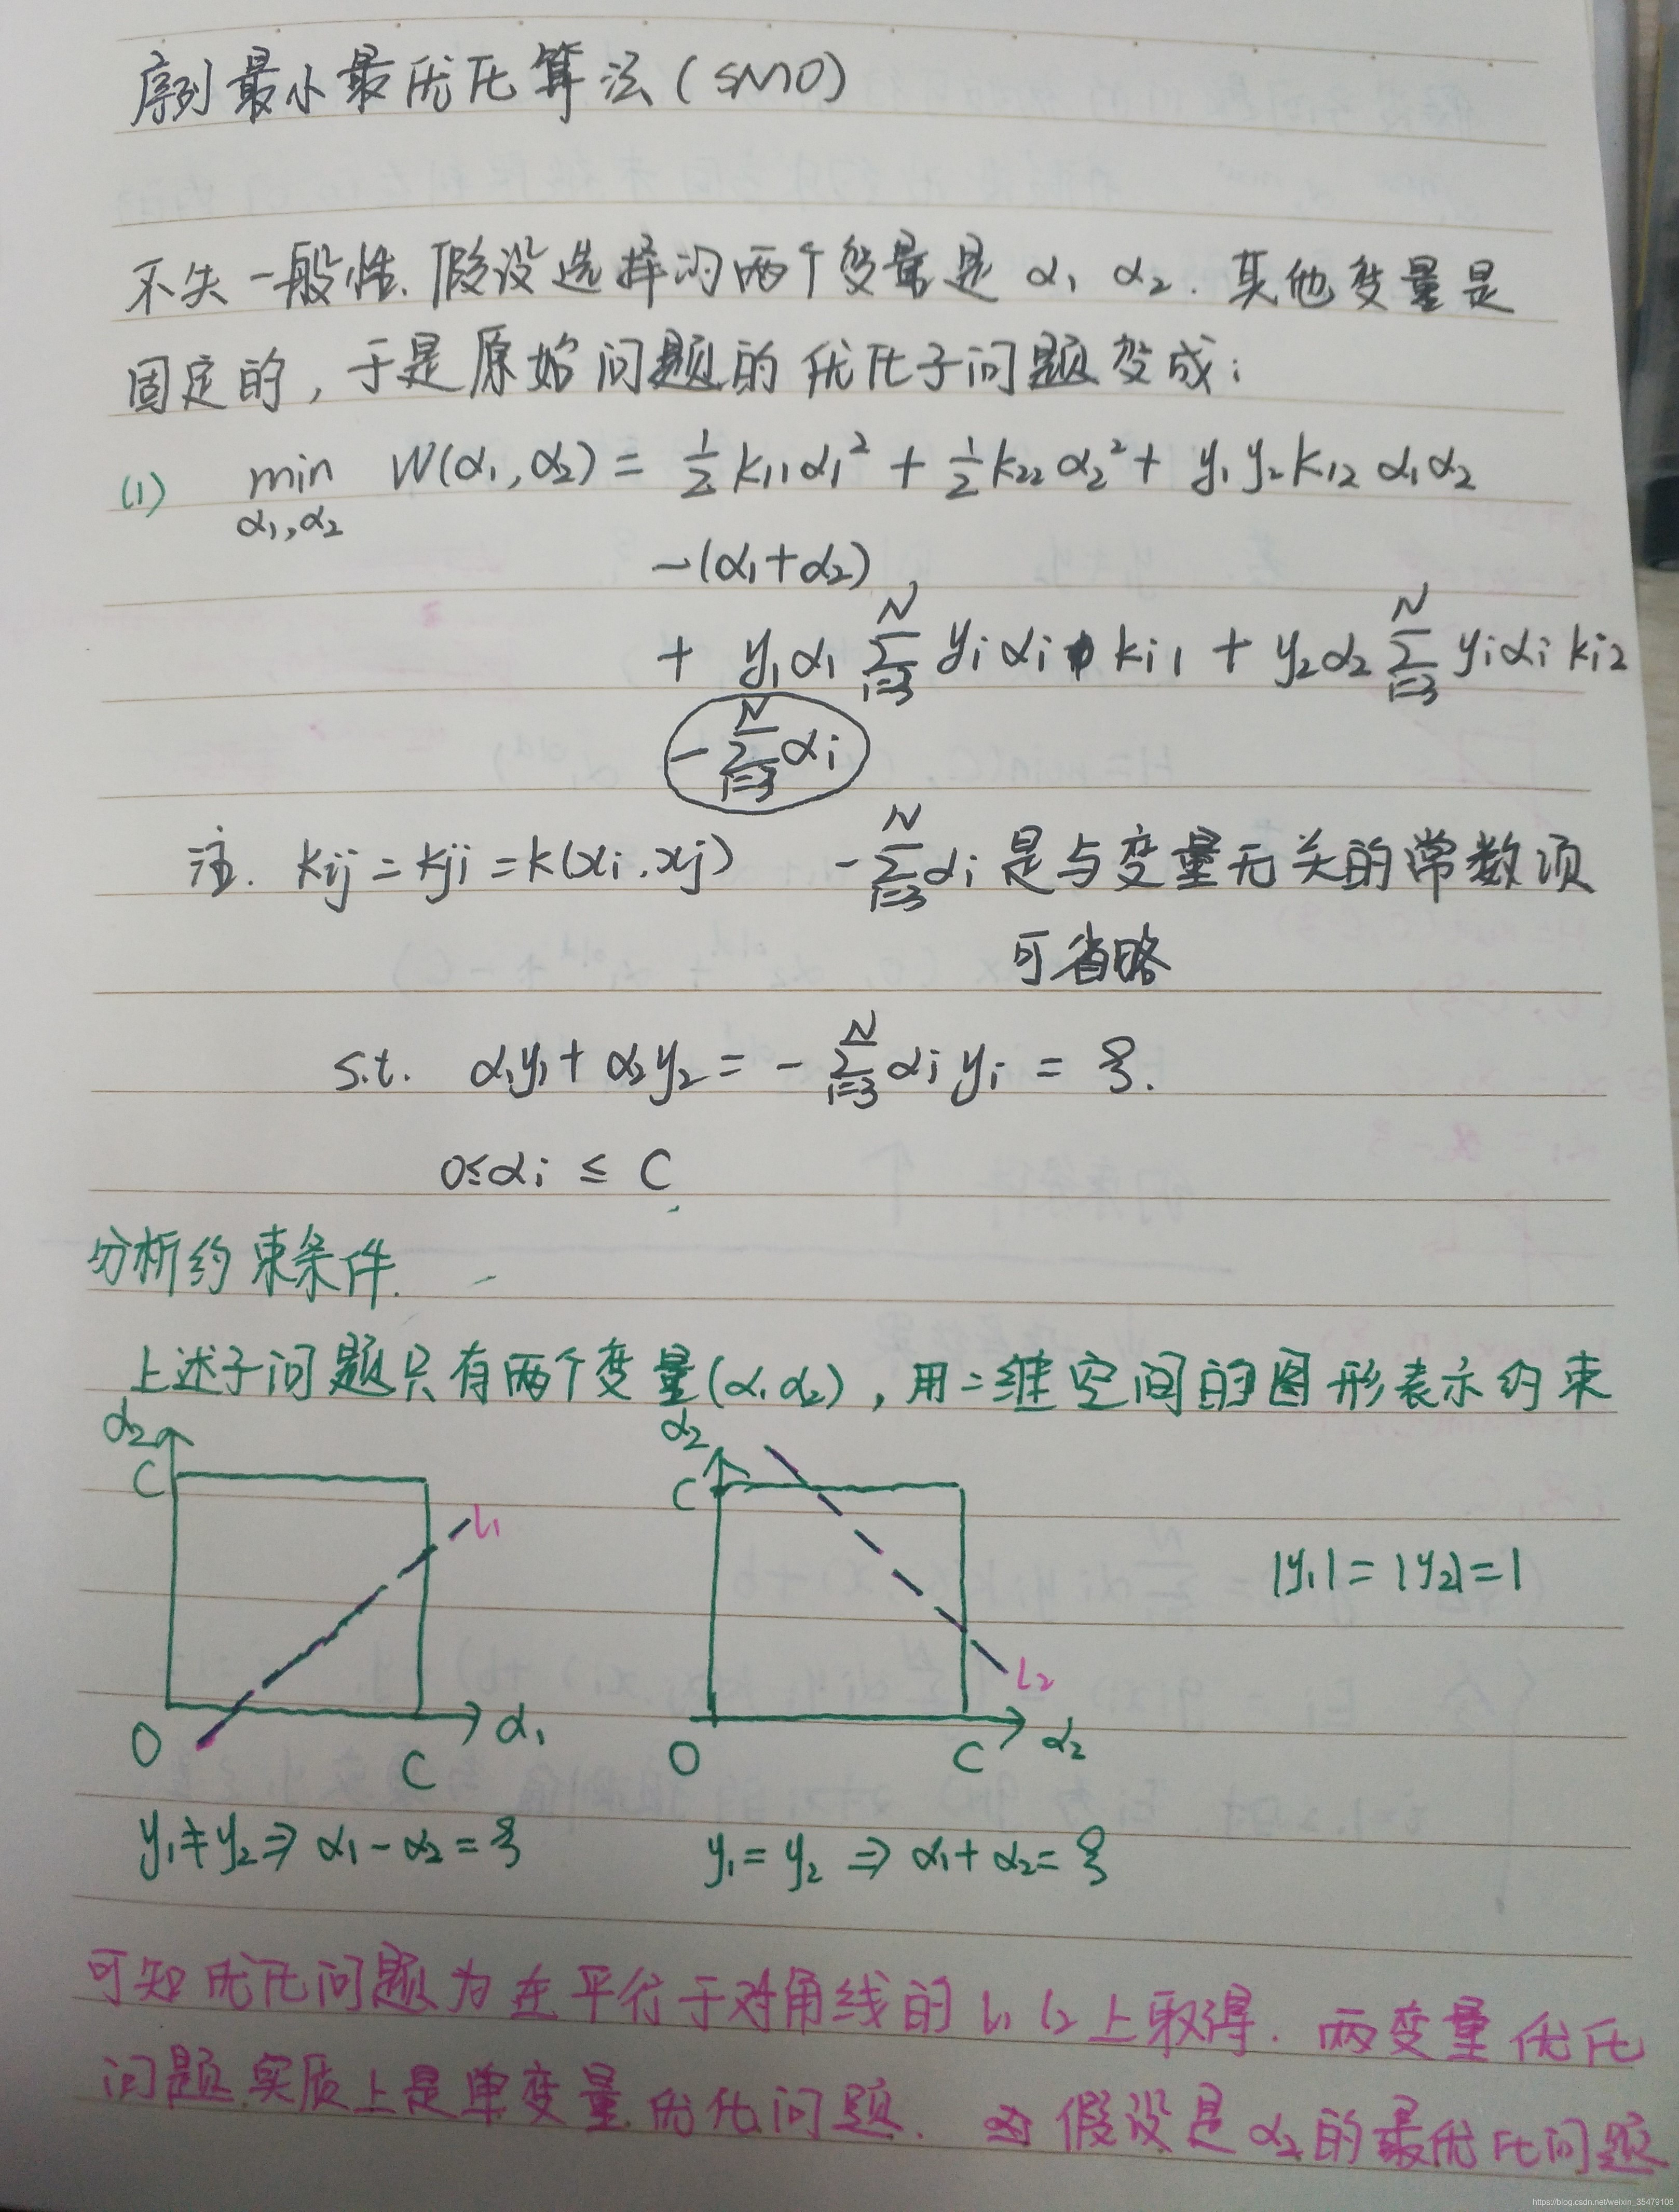 序列最小最优化算法(SMO)
不失一般性.假设选择的两个变量是 α₁ α₂. 其他变量是
固定的,于是原始问题的优化子问题变成:
(1) min W(α₁,α₂) = ½ K₁₁α₁² + ½ K₂₂α₂² + y₁y₂K₁₂ α₁α₂
α₁,α₂
-(α₁+α₂)
+ y₁α₁ Σᵢ₌₃ᴺ yᵢαᵢ Kᵢ₁ + y₂α₂ Σᵢ₌₃ᴺ yᵢαᵢ Kᵢ₂
- Σᵢ₌₃ᴺ αᵢ
注. Kij = Kji = K(xi.xj) - Σᵢ₌₃ᴺ αᵢ 是与变量无关的常数项
可省略
s.t. α₁y₁ + α₂y₂ = - Σᵢ₌₃ᴺ αᵢyᵢ = ξ.
0≤αᵢ ≤ C
分析约束条件.
上述子问题只有两个变量(α₁α₂),用二维空间的图形表示约束
α₂ α₂
C C
L₁
|y₁| = |y₂| = 1
L₂
O C α₁ O C α₂
y₁≠y₂ ⇒ α₁-α₂ = ξ y₁= y₂ ⇒ α₁+α₂= ξ
可知优化问题为在平行于对角线的 L₁ L₂ 上取得. 两变量优化
问题.实质上是单变量.优化问题. 假设是 α₂ 的最优化问题
https://blog.csdn.net/weixin_35479108